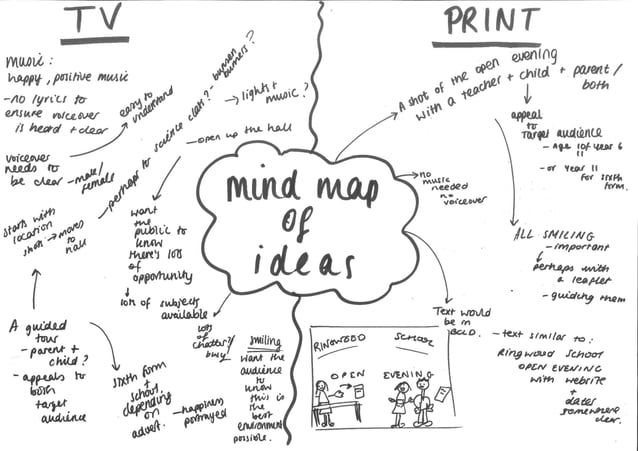 TV
music:
happy, positive music
-no lyrics to
ensure voiceover
is heard + clear
easy to
understand
voiceover
needs to
be clear - male/
female
-perhaps to science class? - bunsen
burners?
→ lights +
music?
-open up the hall
starts with
location
shot → moves
to
hall
want
the
public to
know
there's lots
of
opportunity
↓
lots of subjects
available
lots
of
chatter?/
busy
A guided
tour
-parent +
child?
-appeals to
both
target
audience
sixth form
+
school,
depending
on
advert.
-happiness
portrayed
smiling
want the
audience
to
know
this is
the
best
environment
possible.
mind map
of
ideas
PRINT
A shot of the open evening
with a teacher + child + parent/
both
appeal
to
Target audience
- Age 10/ year 6
11
-or year 11
for sixth
form.
no
music
needed
no
voiceover
ALL SMILING
-important
perhaps with
a leaflet
-guiding them
Text would
be in
BOLD.
-text similar to:
Ringwood School
OPEN EVENING
with website
+
dates
somewhere
clear.
RINGWOOD SCHOOL
OPEN EVENING